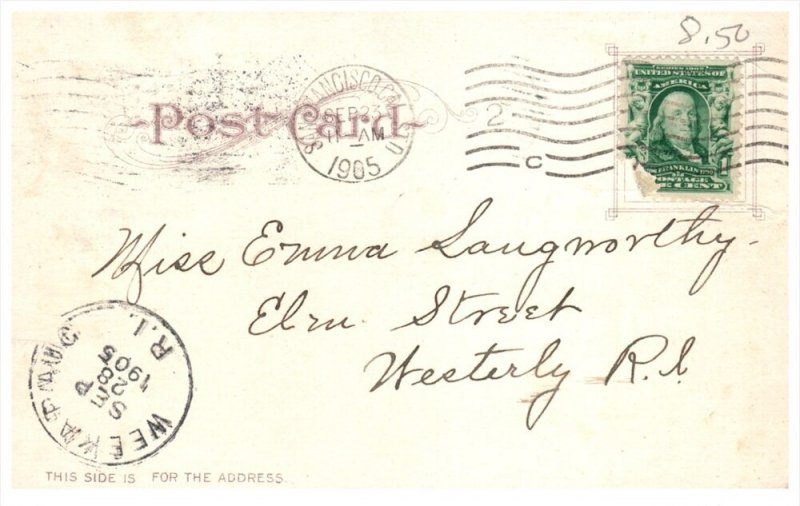 8.50
SERIES 1902
UNITED STATES OF
AMERICA
FRANKLIN 1790
POSTAGE
CENT
Post Card
SAN FRANCISCO, CAL.
SEP 2
11 AM
1905
2
C
Miss Emma Langworthy.
Elm Street
Westerly R.I.
WEEKAPAUG R.I.
SEP
28
1905
THIS SIDE IS FOR THE ADDRESS.